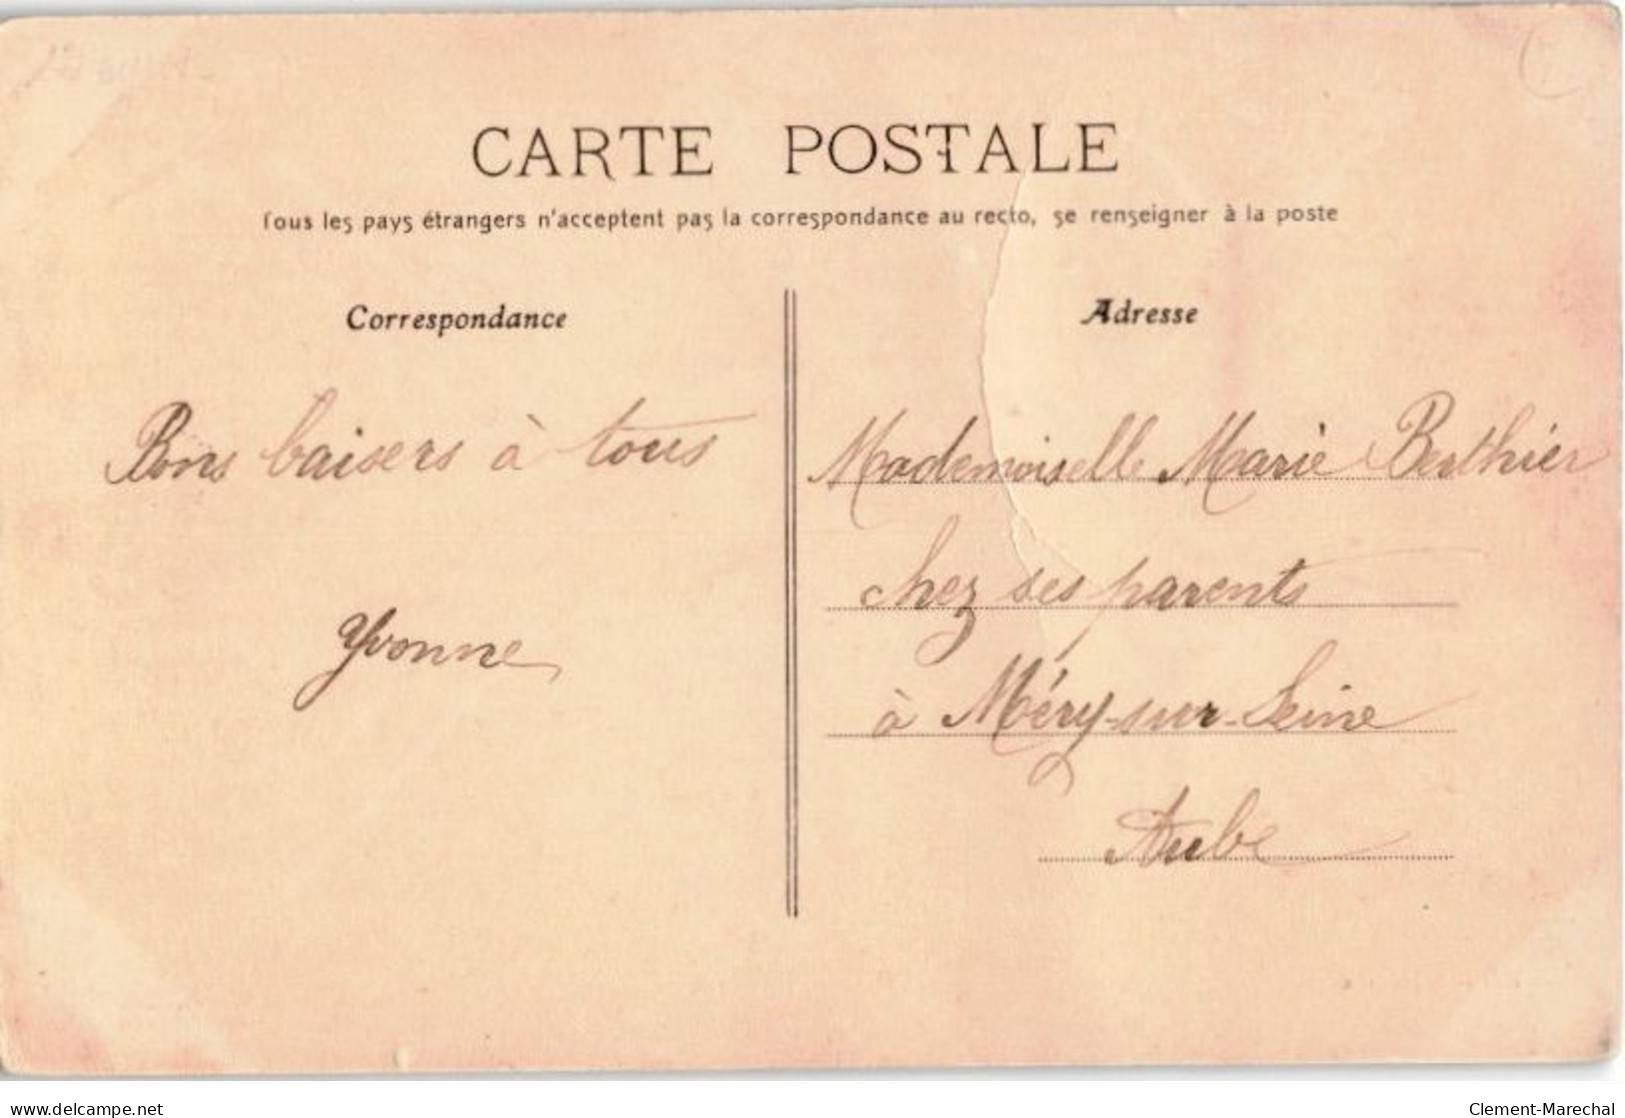 CARTE POSTALE
Tous les pays étrangers n'acceptent pas la correspondance au recto, se renseigner à la poste
Correspondance
Bons baisers à tous
Yvonne
Adresse
Mademoiselle Marie Berthier
chez ses parents
à Méry-sur-Seine
Aube
www.delcampe.net
Clement-Marechal